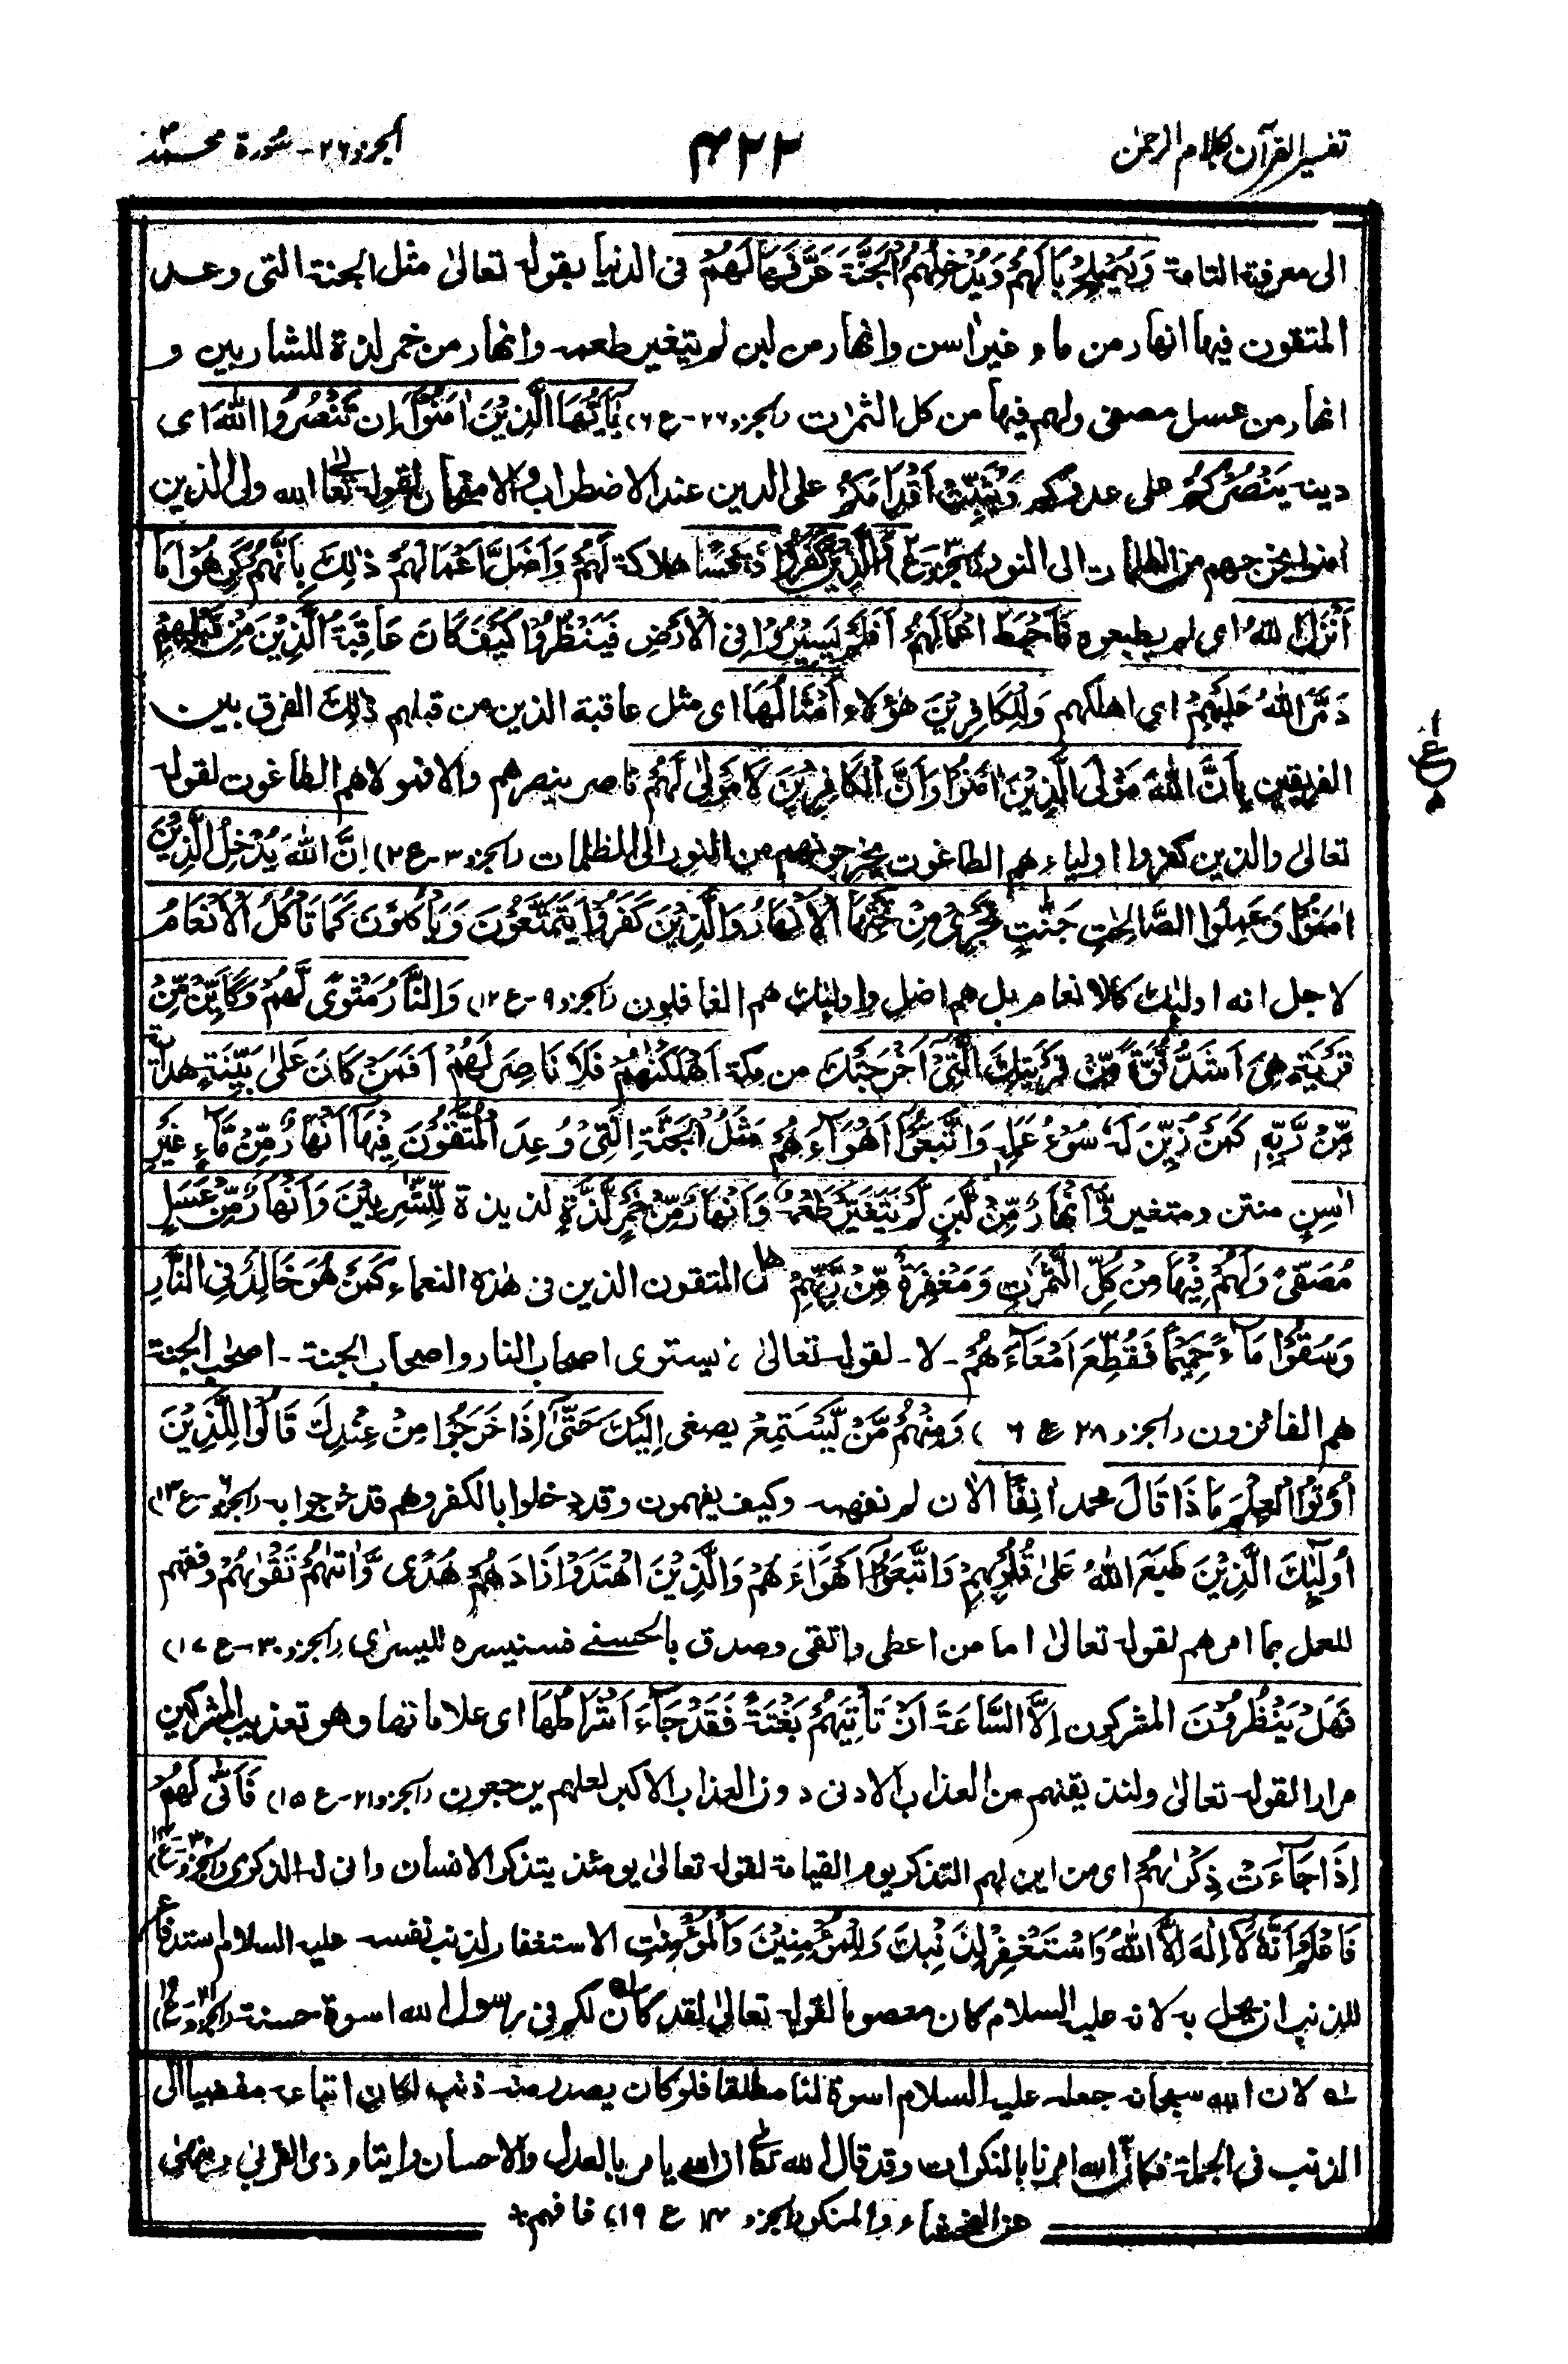 تفسير القرآن بكلام الرحمٰن
٤٢٢
الجزء ٢٦ - سُورة محمد
الى معرفة التامة وَيُصْلِحُ بَالَهُمْ وَيُدْخِلُهُمُ الْجَنَّةَ عَرَّفَهَا لَهُمْ فى الدنيا بقوله تعالىٰ مثل الجنة التى وعد
المتقون فيها انهار من ماء غير اٰسن وانهار من لبن لم يتغير طعمه وانهار من خمر لذة للشاربين و
انهار من عسل مصفى ولهم فيها من كل الثمرٰت (الجزء ٢٦ - ع ٦) يٰٓاَيُّهَا الَّذِيْنَ اٰمَنُوْٓا اِنْ تَنْصُرُوا اللّٰهَ اى
دينه يَنْصُرْكُمْ على عدوكم وَيُثَبِّتْ اَقْدَامَكُمْ على الدين عند الاضطراب والامتحان لقوله تعالىٰ الله ولى الذين
اٰمنوا يخرجهم من الظلمات الى النور وَالَّذِيْنَ كَفَرُوْا فَتَعْسًا هلاكة لَهُمْ وَاَضَلَّ اَعْمَالَهُمْ ذٰلِكَ بِاَنَّهُمْ كَرِهُوْا مَا
اَنْزَلَ اللّٰهُ اى لم يطيعوه فَاَحْبَطَ اَعْمَالَهُمْ اَفَلَمْ يَسِيْرُوْا فِى الْاَرْضِ فَيَنْظُرُوْا كَيْفَ كَانَ عَاقِبَةُ الَّذِيْنَ مِنْ قَبْلِهِمْ
دَمَّرَ اللّٰهُ عَلَيْهِمْ اى اهلكهم وَلِلْكَافِرِيْنَ هؤلاء اَمْثَالُهَا اى مثل عاقبة الذين من قبلهم ذٰلِكَ الفرق بين
الفريقين بِاَنَّ اللّٰهَ مَوْلَى الَّذِيْنَ اٰمَنُوْا وَاَنَّ الْكَافِرِيْنَ لَا مَوْلٰى لَهُمْ ناصر ينصرهم والا فمولاهم الطاغوت لقوله
تعالىٰ والذين كفروا اولياءهم الطاغوت يخرجونهم من النور الى الظلمات (الجزء ٣ - ع ٢) اِنَّ اللّٰهَ يُدْخِلُ الَّذِيْنَ
اٰمَنُوْا وَعَمِلُوا الصَّالِحٰتِ جَنّٰتٍ تَجْرِىْ مِنْ تَحْتِهَا الْاَنْهَارُ وَالَّذِيْنَ كَفَرُوْا يَتَمَتَّعُوْنَ وَيَاْكُلُوْنَ كَمَا تَاْكُلُ الْاَنْعَامُ
لاجل انه اولٰئك كالانعام بل هم اضل واولٰئك هم الغافلون (الجزء ٩ - ع ١٢) وَالنَّارُ مَثْوًى لَّهُمْ وَكَاَيِّنْ مِّنْ
قَرْيَةٍ هِىَ اَشَدُّ قُوَّةً مِّنْ قَرْيَتِكَ الَّتِىْٓ اَخْرَجَتْكَ من مكة اَهْلَكْنٰهُمْ فَلَا نَاصِرَ لَهُمْ اَفَمَنْ كَانَ عَلٰى بَيِّنَةٍ هداية
مِّنْ رَّبِّهٖ كَمَنْ زُيِّنَ لَهٗ سُوْٓءُ عَمَلِهٖ وَاتَّبَعُوْٓا اَهْوَآءَهُمْ مَثَلُ الْجَنَّةِ الَّتِىْ وُعِدَ الْمُتَّقُوْنَ فِيْهَآ اَنْهَارٌ مِّنْ مَّآءٍ غَيْرِ
اٰسِنٍ منتن ومتغير وَّاَنْهَارٌ مِّنْ لَّبَنٍ لَّمْ يَتَغَيَّرْ طَعْمُهٗ وَاَنْهَارٌ مِّنْ خَمْرٍ لَّذَّةٍ لذيذة لِّلشّٰرِبِيْنَ وَاَنْهَارٌ مِّنْ عَسَلٍ
مُصَفًّى وَلَهُمْ فِيْهَا مِنْ كُلِّ الثَّمَرٰتِ وَمَغْفِرَةٌ مِّنْ رَّبِّهِمْ هل المتقون الذين فى هٰذه النعماء كَمَنْ هُوَ خَالِدٌ فِى النَّارِ
وَسُقُوْا مَآءً حَمِيْمًا فَقَطَّعَ اَمْعَآءَهُمْ - لا - لقوله تعالىٰ لا يستوى اصحاب النار واصحاب الجنة - اصحٰب الجنة
هم الفائزون (الجزء ٢٨ ع ٦) وَمِنْهُمْ مَّنْ يَّسْتَمِعُ يصغى اِلَيْكَ حَتّٰٓى اِذَا خَرَجُوْا مِنْ عِنْدِكَ قَالُوْا لِلَّذِيْنَ
اُوْتُوا الْعِلْمَ مَاذَا قَالَ محمد اٰنِفًا الاٰن لم نفهمه وكيف يفهمون وقد دخلوا بالكفر وهم قد خرجوا به (الجزء ٦ - ع ١٣)
اُولٰٓئِكَ الَّذِيْنَ طَبَعَ اللّٰهُ عَلٰى قُلُوْبِهِمْ وَاتَّبَعُوْٓا اَهْوَآءَهُمْ وَالَّذِيْنَ اهْتَدَوْا زَادَهُمْ هُدًى وَّاٰتٰهُمْ تَقْوٰهُمْ وفقهم
للعمل بما امرهم لقوله تعالىٰ اما من اعطى واتقى وصدق بالحسنے فسنيسره لليسرٰى (الجزء ٣٠ - ع ١٧)
فَهَلْ يَنْظُرُوْنَ المشركون اِلَّا السَّاعَةَ اَنْ تَاْتِيَهُمْ بَغْتَةً فَقَدْ جَآءَ اَشْرَاطُهَا اى علاماتها وهو تعذيب المشركين
مرارا لقوله تعالىٰ ولنذيقنهم من العذاب الادنى دون العذاب الاكبر لعلهم يرجعون (الجزء ٢١ - ع ١٥) فَاَنّٰى لَهُمْ
اِذَا جَآءَتْ ذِكْرٰىهُمْ اى من اين لهم التذكر يوم القيامة لقوله تعالىٰ يومئذ يتذكر الانسان وانى له الذكرى (الجزء ٣٠ - ع ١٤)
فَاعْلَمْ اَنَّهٗ لَآ اِلٰهَ اِلَّا اللّٰهُ وَاسْتَغْفِرْ لِذَنْۢبِكَ وَلِلْمُؤْمِنِيْنَ وَالْمُؤْمِنٰتِ الاستغفار لذنب نفسه عليه السلام استدفاع
للذنب ان يحل به لانه عليه السلام كان معصوما لقوله تعالىٰ لقد كان له لكم فى رسول الله اسوة حسنة (الجزء ٢١ - ع ١٩)
له لان الله سبحانه جعله عليه السلام اسوة لنا مطلقا فلو كان يصدر منه ذنب لكان اتباعه مفضيا الى
الذنب فى الجملة فكأن الله امرنا بالمنكرات وقد قال الله تعالىٰ ان الله يامر بالعدل والاحسان وايتاء ذى القربىٰ وينهىٰ
عن الفحشاء والمنكر (الجزء ١٤ ع ١٩) فافهم
ع